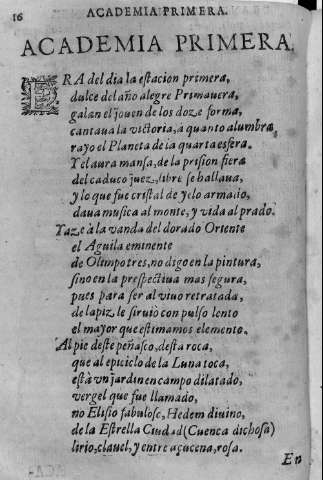 16
ACADEMIA PRIMERA.
ACADEMIA PRIMERA.
ERA del dia la estacion primera,
dulce del año alegre Primauera,
galan el jouen de los doze forma,
cantaua la victoria, a quanto alumbra
rayo el Planeta de la quarta esfera.
Y el aura mansa, de la prision fiera
del caduco juez, libre se hallaua,
y lo que fue cristal de yelo armado,
daua musica al monte, y vida al prado.
Yaze à la vanda del dorado Oriente
el Aguila eminente
de Olimpo tres, no digo en la pintura,
sino en la prespectiua mas segura,
pues para ser al viuo retratada,
de lapiz le siruiò con pulso lento
el mayor que estimamos elemento.
Al pie deste peñasco, desta roca,
que al epiciclo de la Luna toca,
està vn jardin en campo dilatado,
vergel que fue llamado,
no Elisio fabuloso, Hedem diuino,
de la Estrella Ciudad (Cuenca dichosa)
lirio, clauel, y entre açucena, rosa.
En